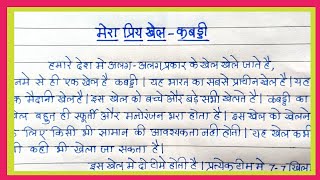 मेरा प्रिय खेल - कबड्डी
हमारे देश में अलग-अलग प्रकार के खेल खेले जाते है,
नमे से ही एक खेल है कबड्डी। यह भारत का सबसे प्राचीन खेल है। यह
क मैदानी खेल है। इस खेल को बच्चे और बड़े सभी खेलते है। कबड्डी का
ल बहुत ही स्फूर्ती और मनोरंजन भरा होता है। इस खेल को खेलन
लिए किसी भी सामान की आवश्यकता नही होती। यह खेल कभ
कही भी खेला जा सकता है।
इस खेल मे दो टीमे होती है। प्रत्येक टीम मे 7-7 खिल